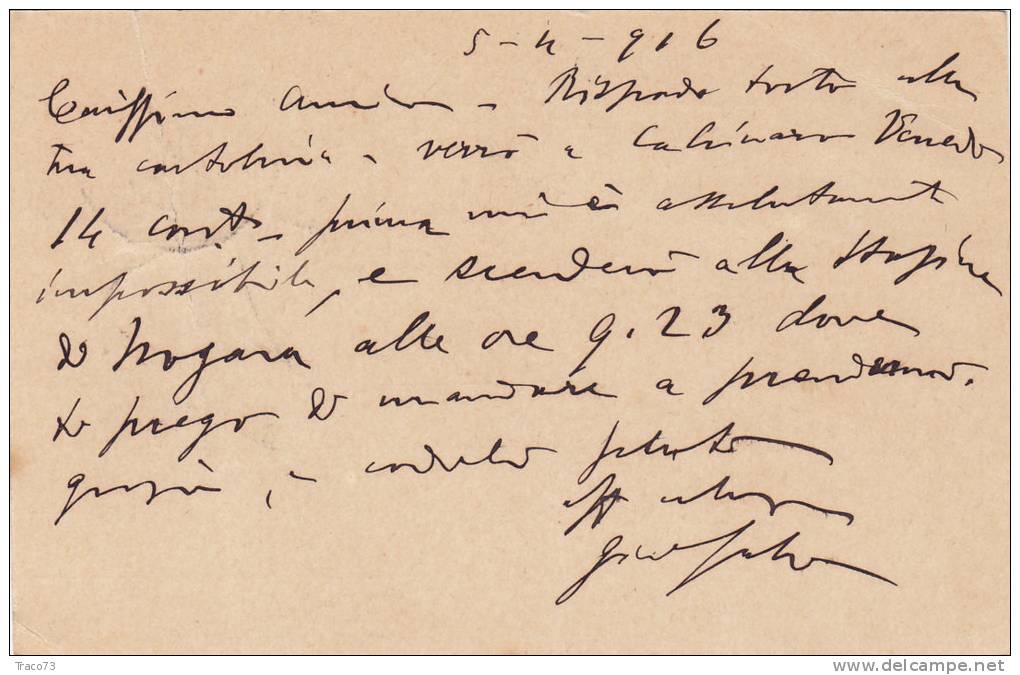 5-4-916
Carissimo amico - Rispondo tosto alla
tua cartolina - verrò a Venerdì
14 corr. - prima mi è assolutamente
impossibile, e scenderò alla stazione
di Nogara alle ore 9.23 dove
ti prego di mandare a prendermi.
grazie, e cordiale saluto
aff
Traco73
www.delcampe.net